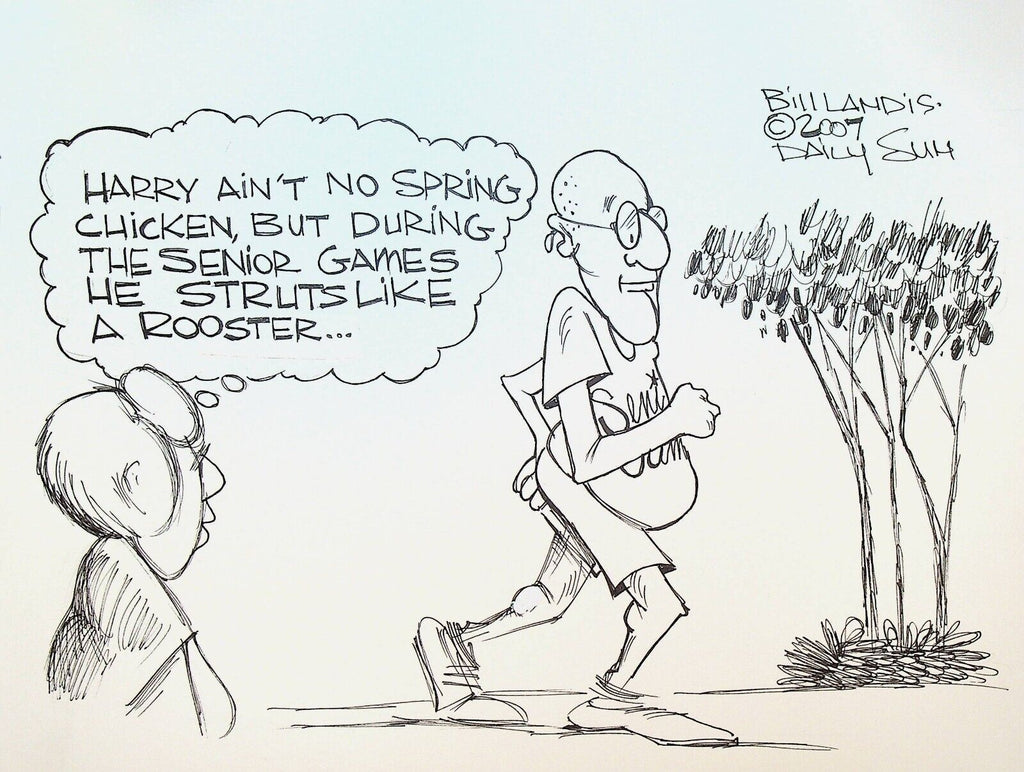 Bill LANDIS.
© 2007
DAILY SUN
HARRY AIN'T NO SPRING
CHICKEN, BUT DURING
THE SENIOR GAMES
HE STRUTS LIKE
A ROOSTER...
Seni
Gam